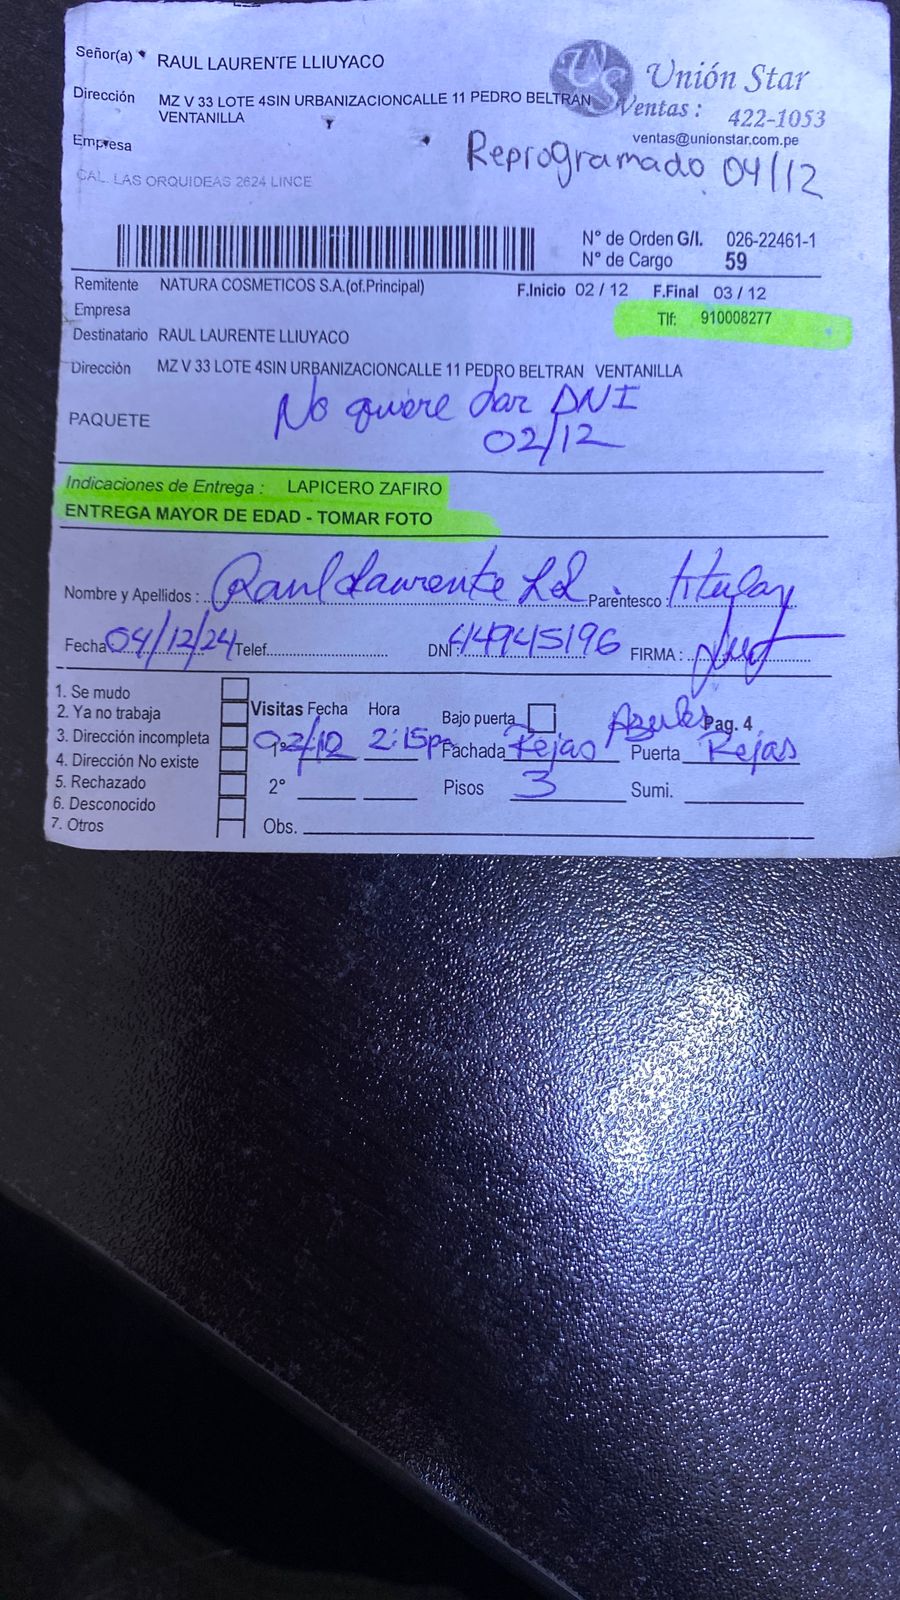 Señor(a) RAUL LAURENTE LLIUYACO
Unión Star
Dirección MZ V 33 LOTE 4SIN URBANIZACIONCALLE 11 PEDRO BELTRAN
VENTANILLA
Ventas : 422-1053
ventas@unionstar.com.pe
Empresa
Reprogramado 04/12
CAL. LAS ORQUIDEAS 2624 LINCE
N° de Orden G/I. 026-22461-1
N° de Cargo 59
Remitente NATURA COSMETICOS S.A.(of.Principal) F.Inicio 02 / 12 F.Final 03 / 12
Empresa Tlf: 910008277
Destinatario RAUL LAURENTE LLIUYACO
Dirección MZ V 33 LOTE 4SIN URBANIZACIONCALLE 11 PEDRO BELTRAN VENTANILLA
PAQUETE No quiere dar DNI
02/12
Indicaciones de Entrega : LAPICERO ZAFIRO
ENTREGA MAYOR DE EDAD - TOMAR FOTO
Nombre y Apellidos : Raul Laurente Ll. Parentesco : titular
Fecha 04/12/24 Telef. DNI: 44945196 FIRMA :
1. Se mudo
2. Ya no trabaja
3. Dirección incompleta
4. Dirección No existe
5. Rechazado
6. Desconocido
7. Otros
Visitas Fecha Hora Bajo puerta Azules Pag. 4
1° 02/12 2:15p Fachada Rejas Puerta Rejas
2° Pisos 3 Sumi.
Obs.